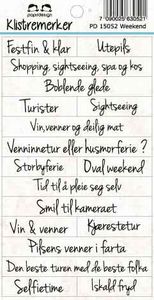 papirdesign
7090025830521
Klistremerker PD 15052 Weekend
Festfin & klar Utepils
Shopping, sightseeing, spa og kos
Boblende glede
Turister Sightseeing
Vin, venner og deilig mat
Venninnetur eller husmorferie ?
Storbyferie Oval weekend
Tid til å pleie seg selv
Smil til kameraet
Vin & venner Kjærestetur
Pilsens venner i farta
Den beste turen med de beste folka
Selfietime Iskald fryd